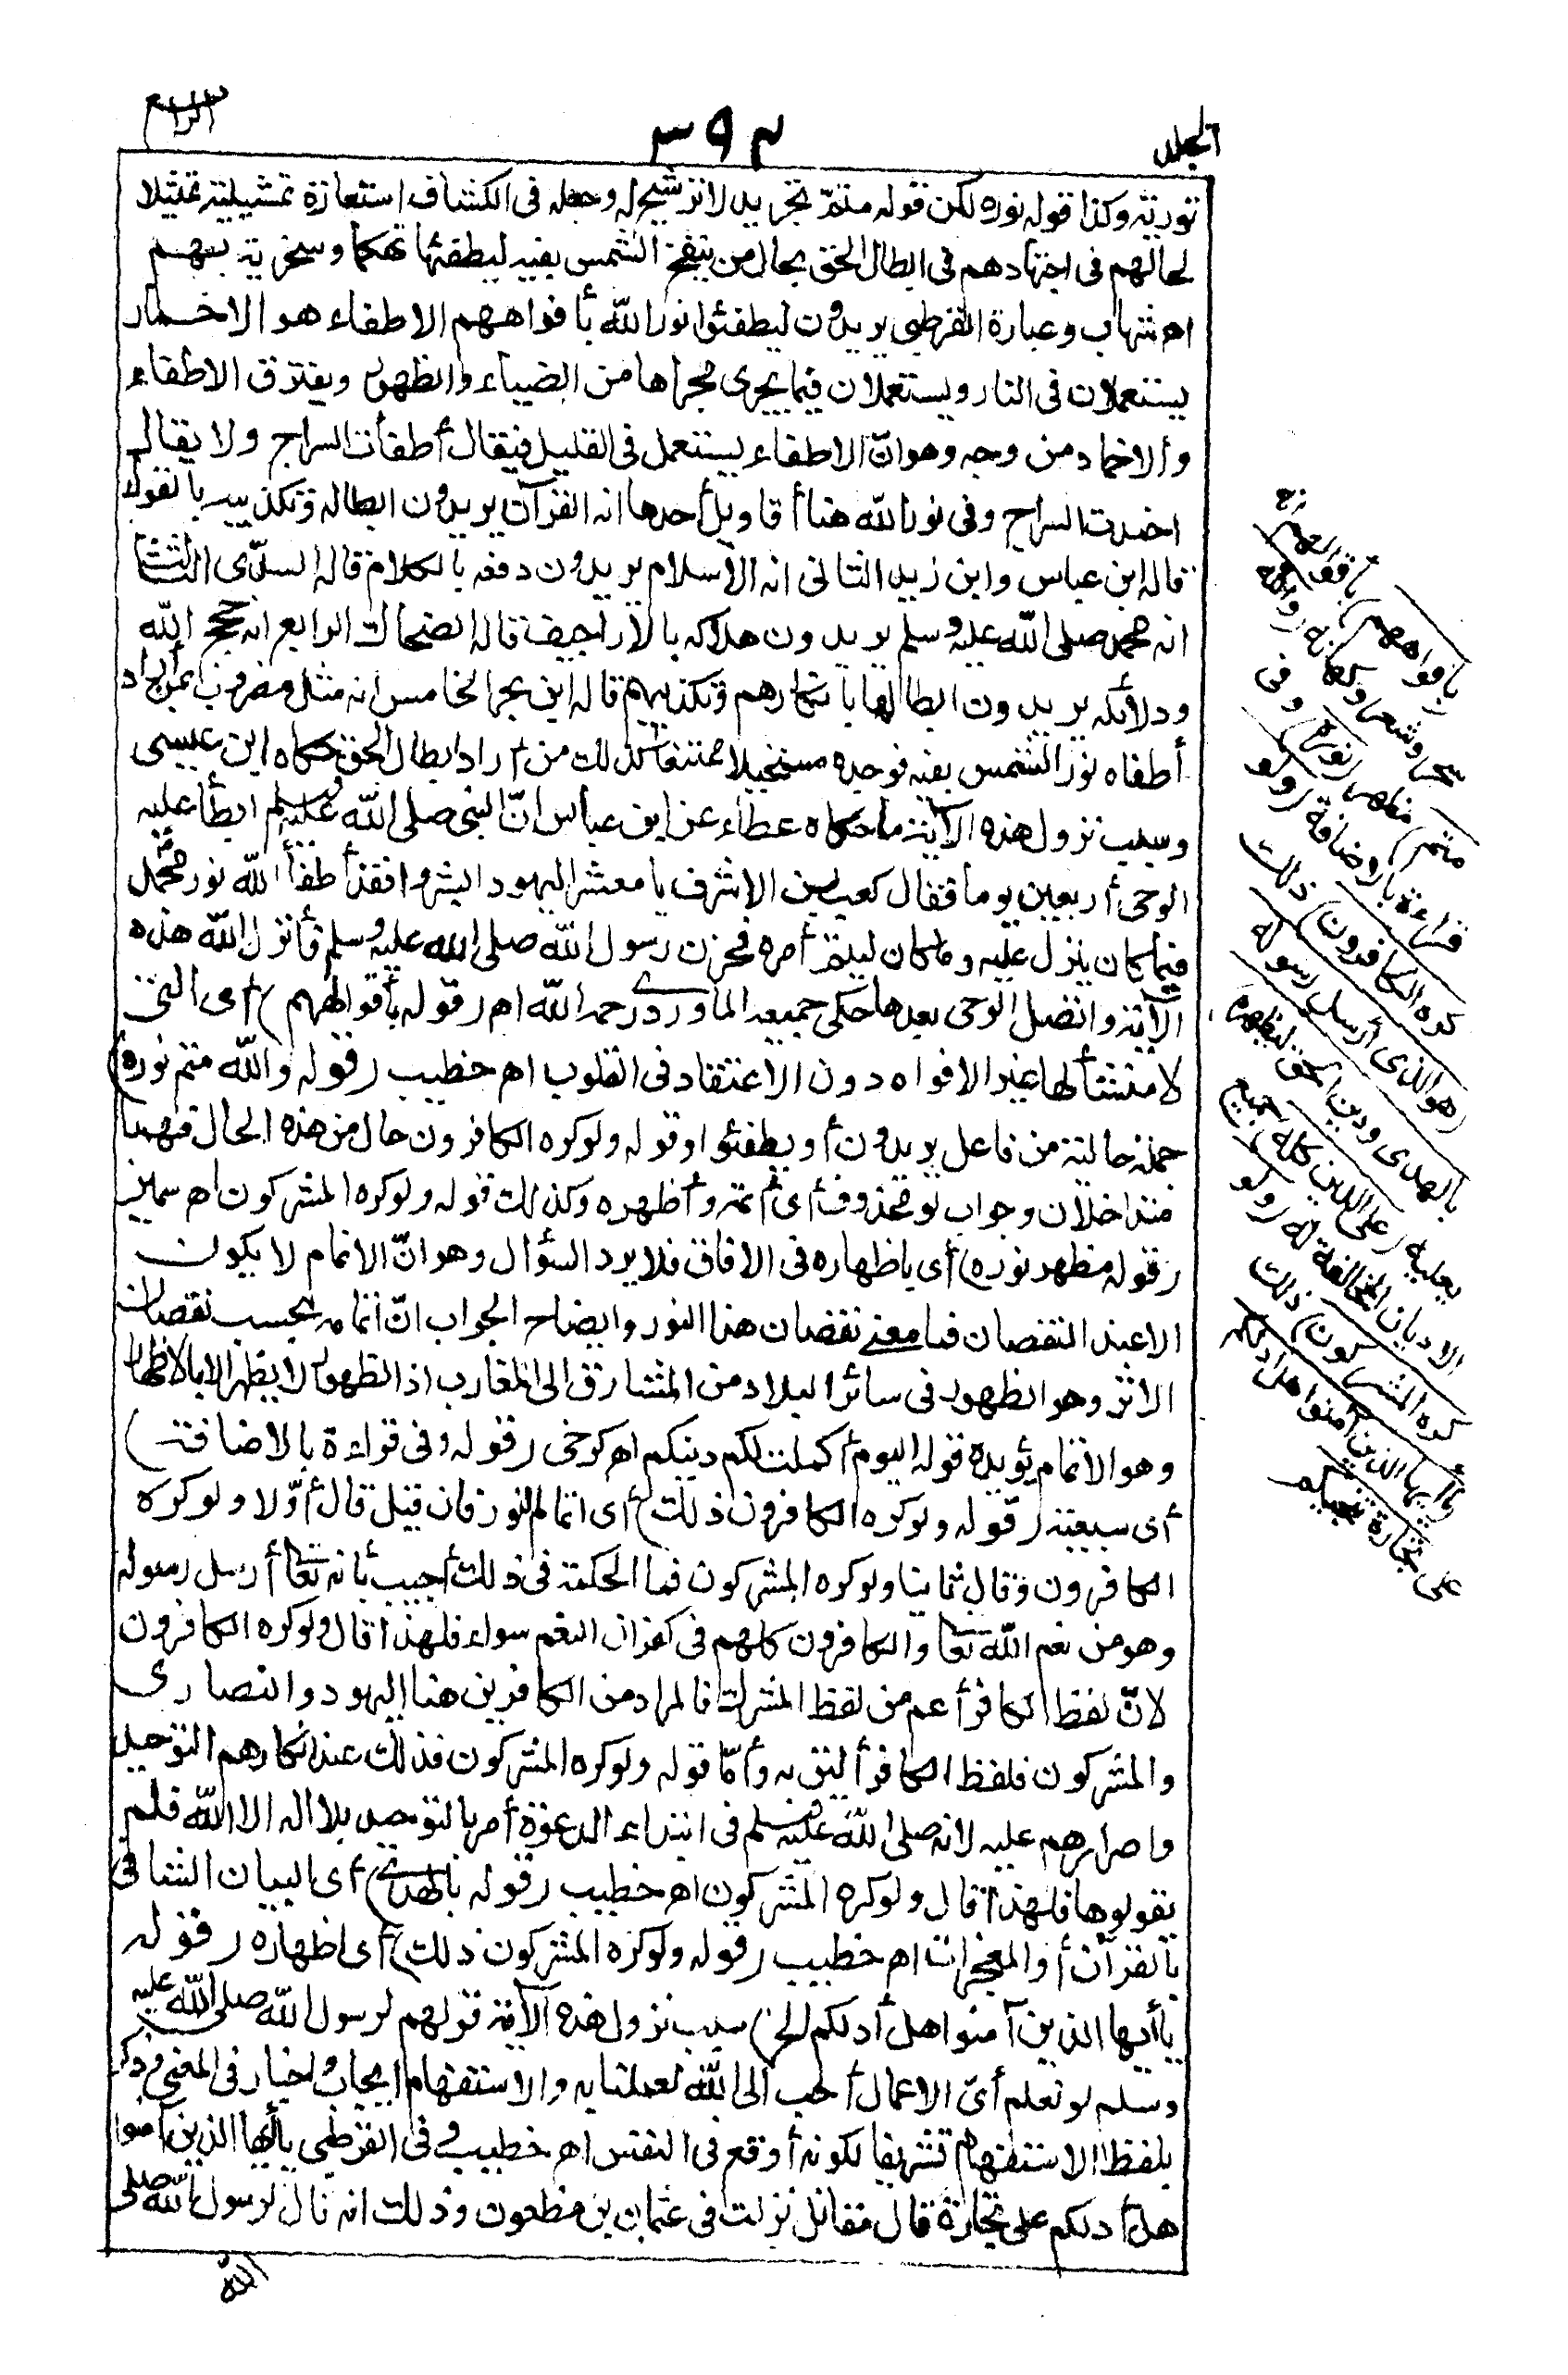 الجلد
٣٩٢
الرابع
تورية وكذا قوله نوره لكن قوله متمّ تجريد لا ترشيح له وجعله فى الكشاف استعارة تمثيلية تمثيلا
لحالهم فى اجتهادهم فى ابطال الحق بحال من ينفخ الشمس بفيه ليطفئها تهكما وسخرية بهم
اه شهاب وعبارة القرطبى يريدون ليطفئوا نور الله بأفواههم الاطفاء هو الاخماد
يستعملان فى النار ويستعملان فيما يجرى مجراها من الضياء والظهور ويفترق الاطفاء
والاخماد من وجه وهو انّ الاطفاء يستعمل فى القليل فيقال أطفأت السراج ولا يقال
اخمدت السراج وفى نور الله هنا أقاويل أحدها انه القرآن يريدون ابطاله وتكذيبه بالقول
قاله ابن عباس وابن زيد الثانى انه الاسلام يريدون دفعه بالكلام قاله السدّى الثالث
انه محمد صلى الله عليه وسلم يريدون هلاكه بالاراجيف قاله الضحاك الرابع انه حجج الله
ودلائله يريدون ابطالها بانكارهم وتكذيبهم قاله ابن بحر الخامس انه مثل مضروب لمن اراد
أطفاه نور الشمس بفيه فوجده مستحيلا ممتنعا كذلك من أراد ابطال الحق حكاه ابن عيسى
وسبب نزول هذه الآية ما حكاه عطاء عن ابن عباس انّ النبى صلى الله عليه وسلم ابطأ عليه
الوحى أربعين يوما فقال كعب بن الاشرف يا معشر اليهود ابشروا فقد أطفأ الله نور محمد
فيما كان ينزل عليه وما كان ليتم أمره فحزن رسول الله صلى الله عليه وسلم فأنزل الله هذه
الآية واتصل الوحى بعدها حكى جميعه الماوردى رحمه الله اه (قوله بأقوالهم) أى التى
لا منشأ لها غير الافواه دون الاعتقاد فى القلوب اه خطيب (قوله والله متم نوره)
جملة حالية من فاعل يريدون أو يطفئوا وقوله ولو كره الكافرون حال من هذه الحال فهما
متداخلان وجواب لو محذوف أى أتمه وأظهره وكذلك قوله ولو كره المشركون اه سمين
(قوله مظهر نوره) أى باظهاره فى الافاق فلا يرد السؤال وهو انّ الاتمام لا يكون
الا عند النقصان فما معنى نقصان هذا النور وايضاح الجواب انّ اتمامه بحسب نقصان
الاثر وهو الظهور فى سائر البلاد من المشارق الى المغارب اذ الظهور لا يظهر الا بالاظهار
وهو الاتمام يؤيده قوله اليوم أكملت لكم دينكم اه كرخى (قوله وفى قراءة بالاضافة)
أى سبعية (قوله ولو كره الكافرون ذلك) أى اتمام النور فان قيل قال أوّلا ولو كره
الكافرون وقال ثانيا ولو كره المشركون فما الحكمة فى ذلك أجيب بأنه تعا أرسل رسوله
وهو من نعم الله تعا والكافرون كلهم فى كفران النعم سواء فلهذا قال ولو كره الكافرون
لانّ لفظ الكافر أعم من لفظ المشرك فالمراد من الكافرين هنا اليهود والنصارى
والمشركون فلفظ الكافر أليق به وأمّا قوله ولو كره المشركون فذلك عند انكارهم التوحيد
واصرارهم عليه لانه صلى الله عليه وسلم فى ابتداء الدعوة أمر بالتوحيد بلا اله الا الله فلم
يقولوها فلهذا قال ولو كره المشركون اه خطيب (قوله بالهدى) أى البيان الشافى
بالقرآن أو المعجزات اه خطيب (قوله ولو كره المشركون ذلك) أى اظهاره (قوله
يا أيها الذين آمنوا هل أدلكم الخ) سبب نزول هذه الآية قولهم لرسول الله صلى الله عليه
وسلم لو نعلم أىّ الاعمال أحب الى الله لعملنا به والاستفهام ايجاب واخبار فى المعنى وذكر
بلفظ الاستفهام تشريفا لكونه أوقع فى النفس اه خطيب وفى القرطبى يا أيها الذين آمنوا
هل أدلكم على تجارة قال مقاتل نزلت فى عثمان بن مظعون وذلك انه قال لرسول الله صلى
الله
(بأفواههم) بأقوالهم انه
سحر وشعر وكهانة (والله
متم) مظهر (نوره) وفى
قراءة بالاضافة (ولو
كره الكافرون) ذلك
(هو الذى أرسل رسوله
بالهدى ودين الحق ليظهره)
يعليه (على الدين كله) جميع
الاديان المخالفة له (ولو
كره المشركون) ذلك
(يا أيها الذين آمنوا هل أدلكم
على تجارة تنجيكم